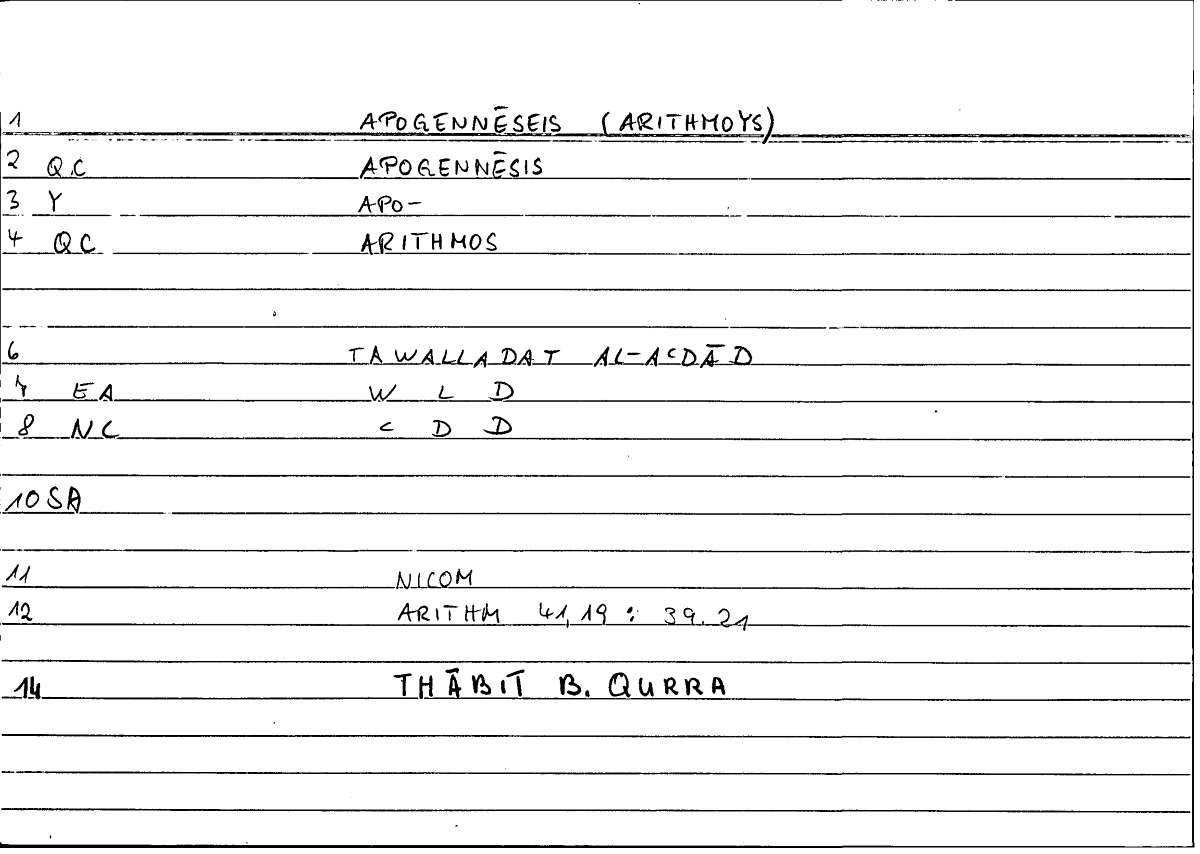 1 APOGENNĒSEIS (ARITHMOYS)
2 QC APOGENNĒSIS
3 Y APO-
4 QC ARITHMOS
6 TAWALLADAT AL-ACDĀD
7 EA W L D
8 NC C D D
10 SA
11 NICOM
12 ARITHM 41,19 : 39.21
14 THĀBIT B. QURRA